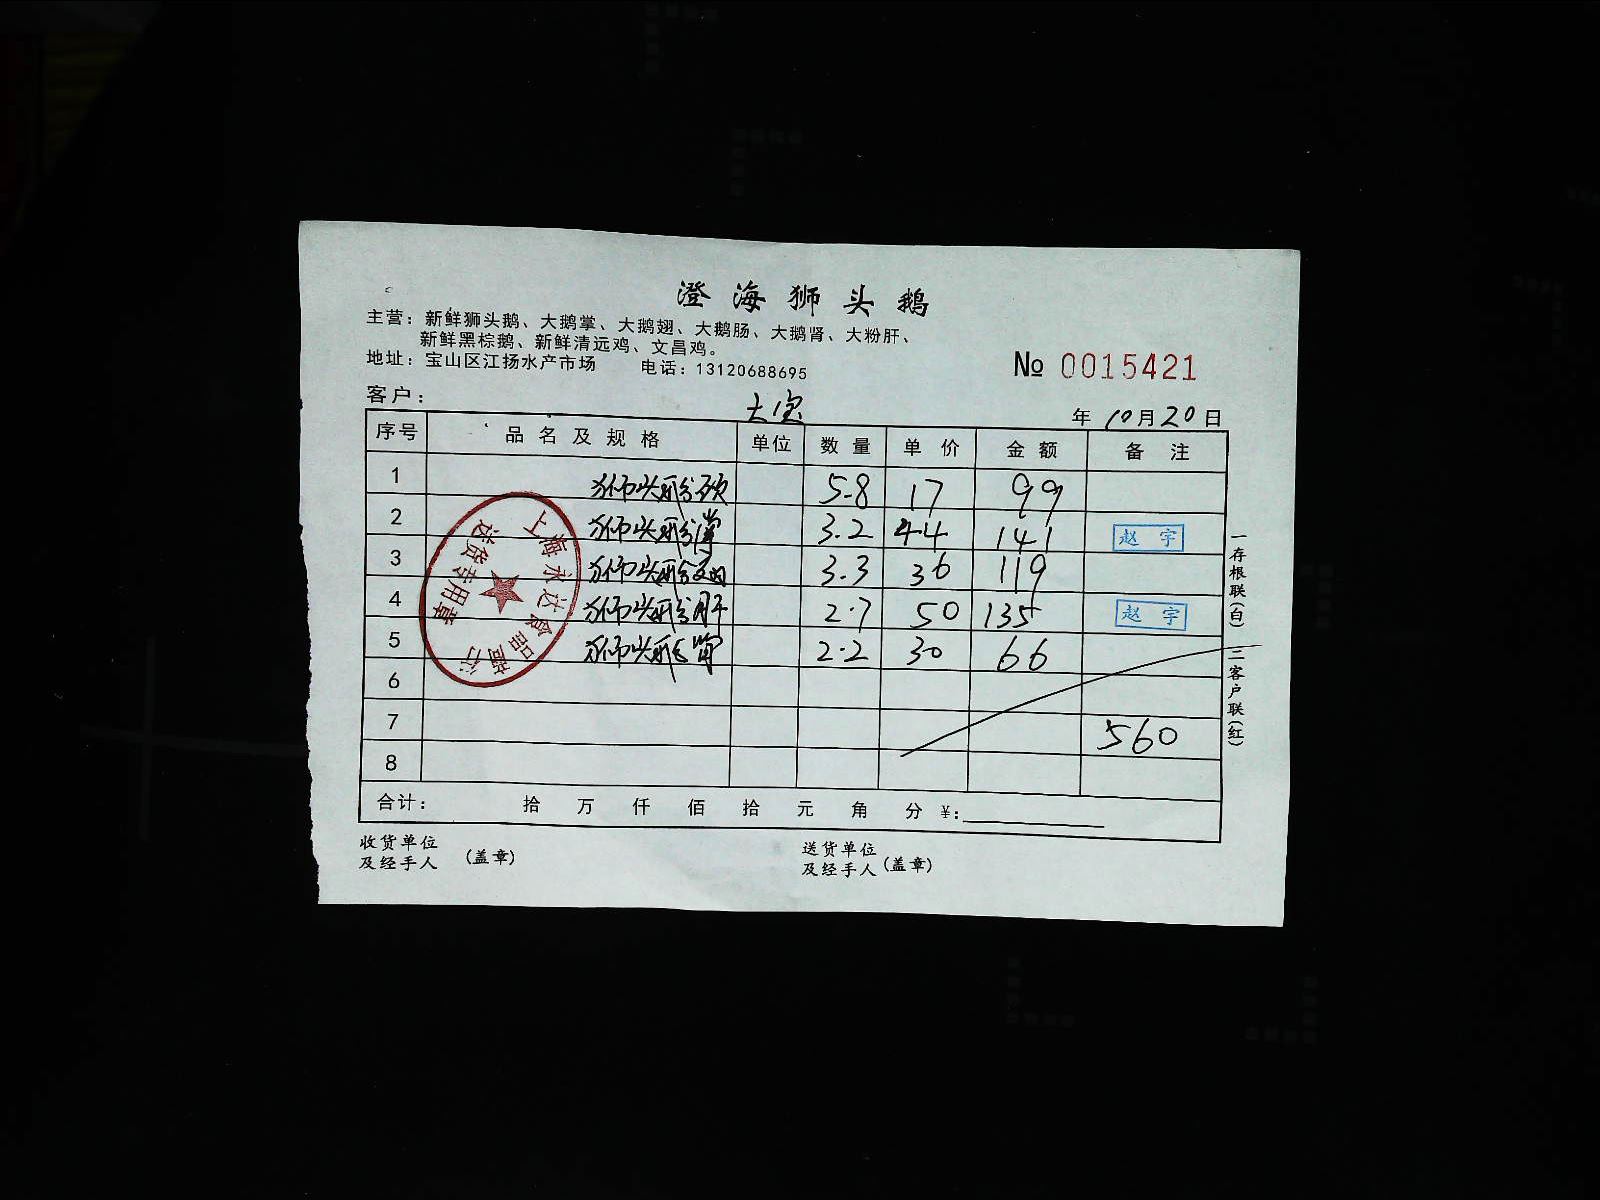 澄海狮头鹅
主营：新鲜狮头鹅、大鹅掌、大鹅翅、大鹅肠、大鹅肾、大粉肝、
新鲜黑棕鹅、新鲜清远鸡、文昌鸡。
地址：宝山区江扬水产市场 电话：13120688695
№ 0015421
客户： 大宝 年 10月20日
序号 品名及规格 单位 数量 单价 金额 备注
1 狮头鹅 5.8 17 99
2 狮头鹅 3.2 44 141 赵宇
3 狮头鹅 3.3 36 119
4 狮头鹅肝 2.7 50 135 赵宇
5 狮头鹅 2.2 30 66
6
7 560
8
合计： 拾 万 仟 佰 拾 元 角 分 ¥:
收货单位
及经手人 (盖章)
送货单位
及经手人 (盖章)
一存根联(白) 二客户联(红)
上海永达食品商行
送货专用章